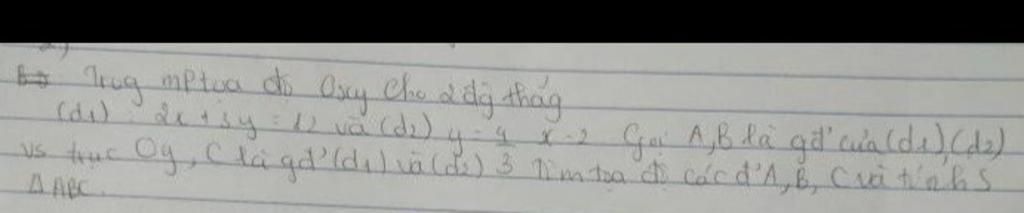 Trog mp tọa độ Oxy cho 2 đg thẳg
(d1): 2x + 3y = 12 và (d2) y = 4/3 x - 2 Gọi A, B là gđ' của (d1), (d2)
vs trục Oy, C là gđ' (d1) và (d2) Tìm tọa độ các đ' A, B, C và tính S
Δ ABC.